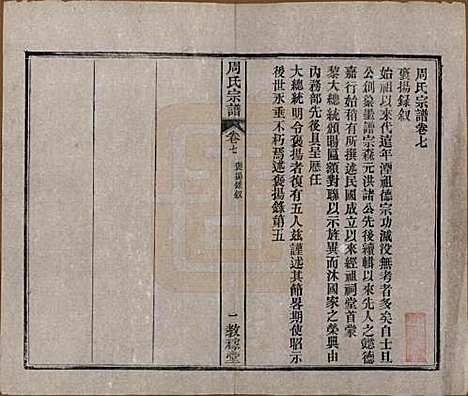 周氏宗譜卷七
褒揚錄叙
始祖以來代遠年湮祖德宗功滅沒無考者多矣自士旦
公創纂墨譜宗森元洪諸公先後續輯以來先人之懿德
嘉行始稍有所撰述民國成立以來經祖祠堂首蒙
黎大總統賜區額對聯以示旌異而沐國家之榮典由
內務部先後具呈歷任
大總統明令褒揚者復有五人茲謹述其節畧期使昭示
後世永垂不朽焉述褒揚錄第五
周氏宗譜
卷七
褒揚錄叙
一
敎稼堂